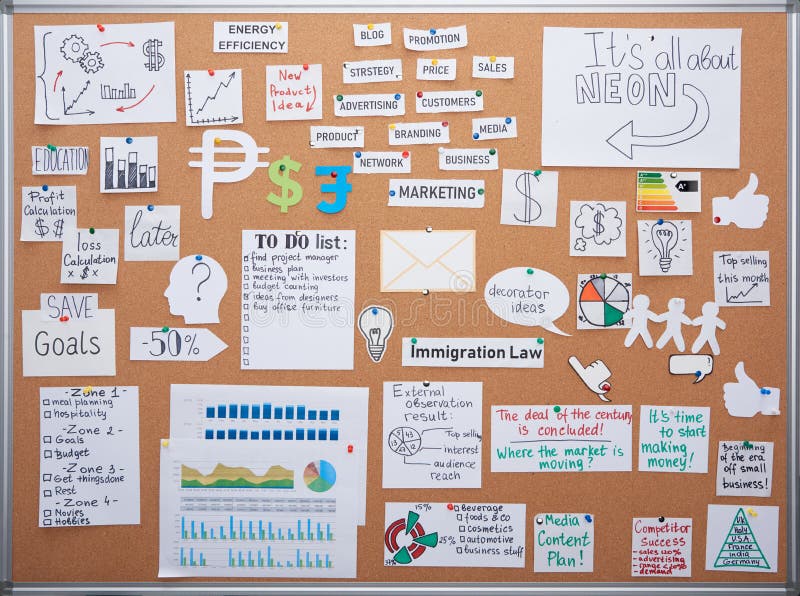 ENERGY
EFFICIENCY
BLOG
PROMOTION
STRETEGY
PRICE
SALES
ADVERTISING
CUSTOMERS
PRODUCT
BRANDING
MEDIA
NETWORK
BUSINESS
MARKETING
New
Product
Idea
It's all about
NEON
EDUCATION
Profit
Calculation
$ $
loss
Calculation
x $
later
?
SAVE
Goals
-50%
TO DO list:
find project manager
business plan
meeting with investors
budget counting
ideas from designers
buy office furniture
decorator
ideas
A+
Top selling
this month
Immigration Law
- Zone 1 -
meal planning
hospitality
- Zone 2 -
Goals
Budget
- Zone 3 -
Get things done
Rest
- Zone 4 -
Movies
Hobbies
External
observation
result:
Top selling
interest
audience
reach
The deal of the century
is concluded!
Where the market is
moving?
It's time
to start
making
money!
Beginning
of the era
off small
business!
15%
25%
beverage
foods & co
cosmetics
automotive
business stuff
Media
Content
Plan!
Competitor
Success
- sales 120%
- advertising
- range <200%
- demand
Uk
Italy
U.S.A.
France
india
Germany
dreamstime